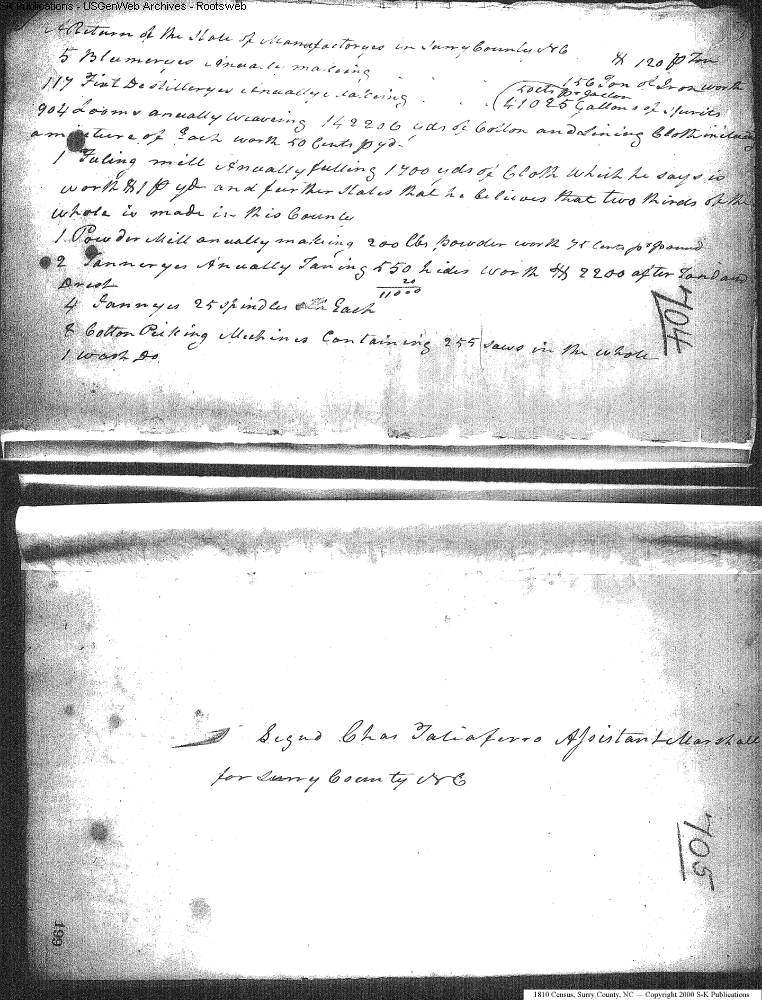 S-K Publications - USGenWeb Archives - Rootsweb
A Return of the State of Manufactoryes in Surry County NC
5 Blumeryes Anuale making $ 120 p Ton
156 Ton of Iron worth
117 First Destilleryes Anually Making 50 cts pr gallon
41025 Gallons of Spirits
904 Looms anually Weaveing 142206 yds of Cotton and Lining Cloth includeing
a mixture of Each worth 50 Cents p yd
1 Fuling mill Anually fulling 1700 yds of Cloth which he says is
worth $1 p yd and further states that he believes that two thirds of the
whole is made in this County
1 Powder Mill anually making 200 lbs powder worth 75 Cents pr pound
2 Tanneryes Anually Taning 550 hides worth $ 2200 after Tand and
Drest
20
11000
4 Jannyes 25 spindles Each
8 Cotton Picking Mechines Containing 255 saws in the whole
1 Do
704
Signd Chas Taliaferro Assistant Marshall
for Surry County NC
705
199
1810 Census, Surry County, NC — Copyright 2000 S-K Publications